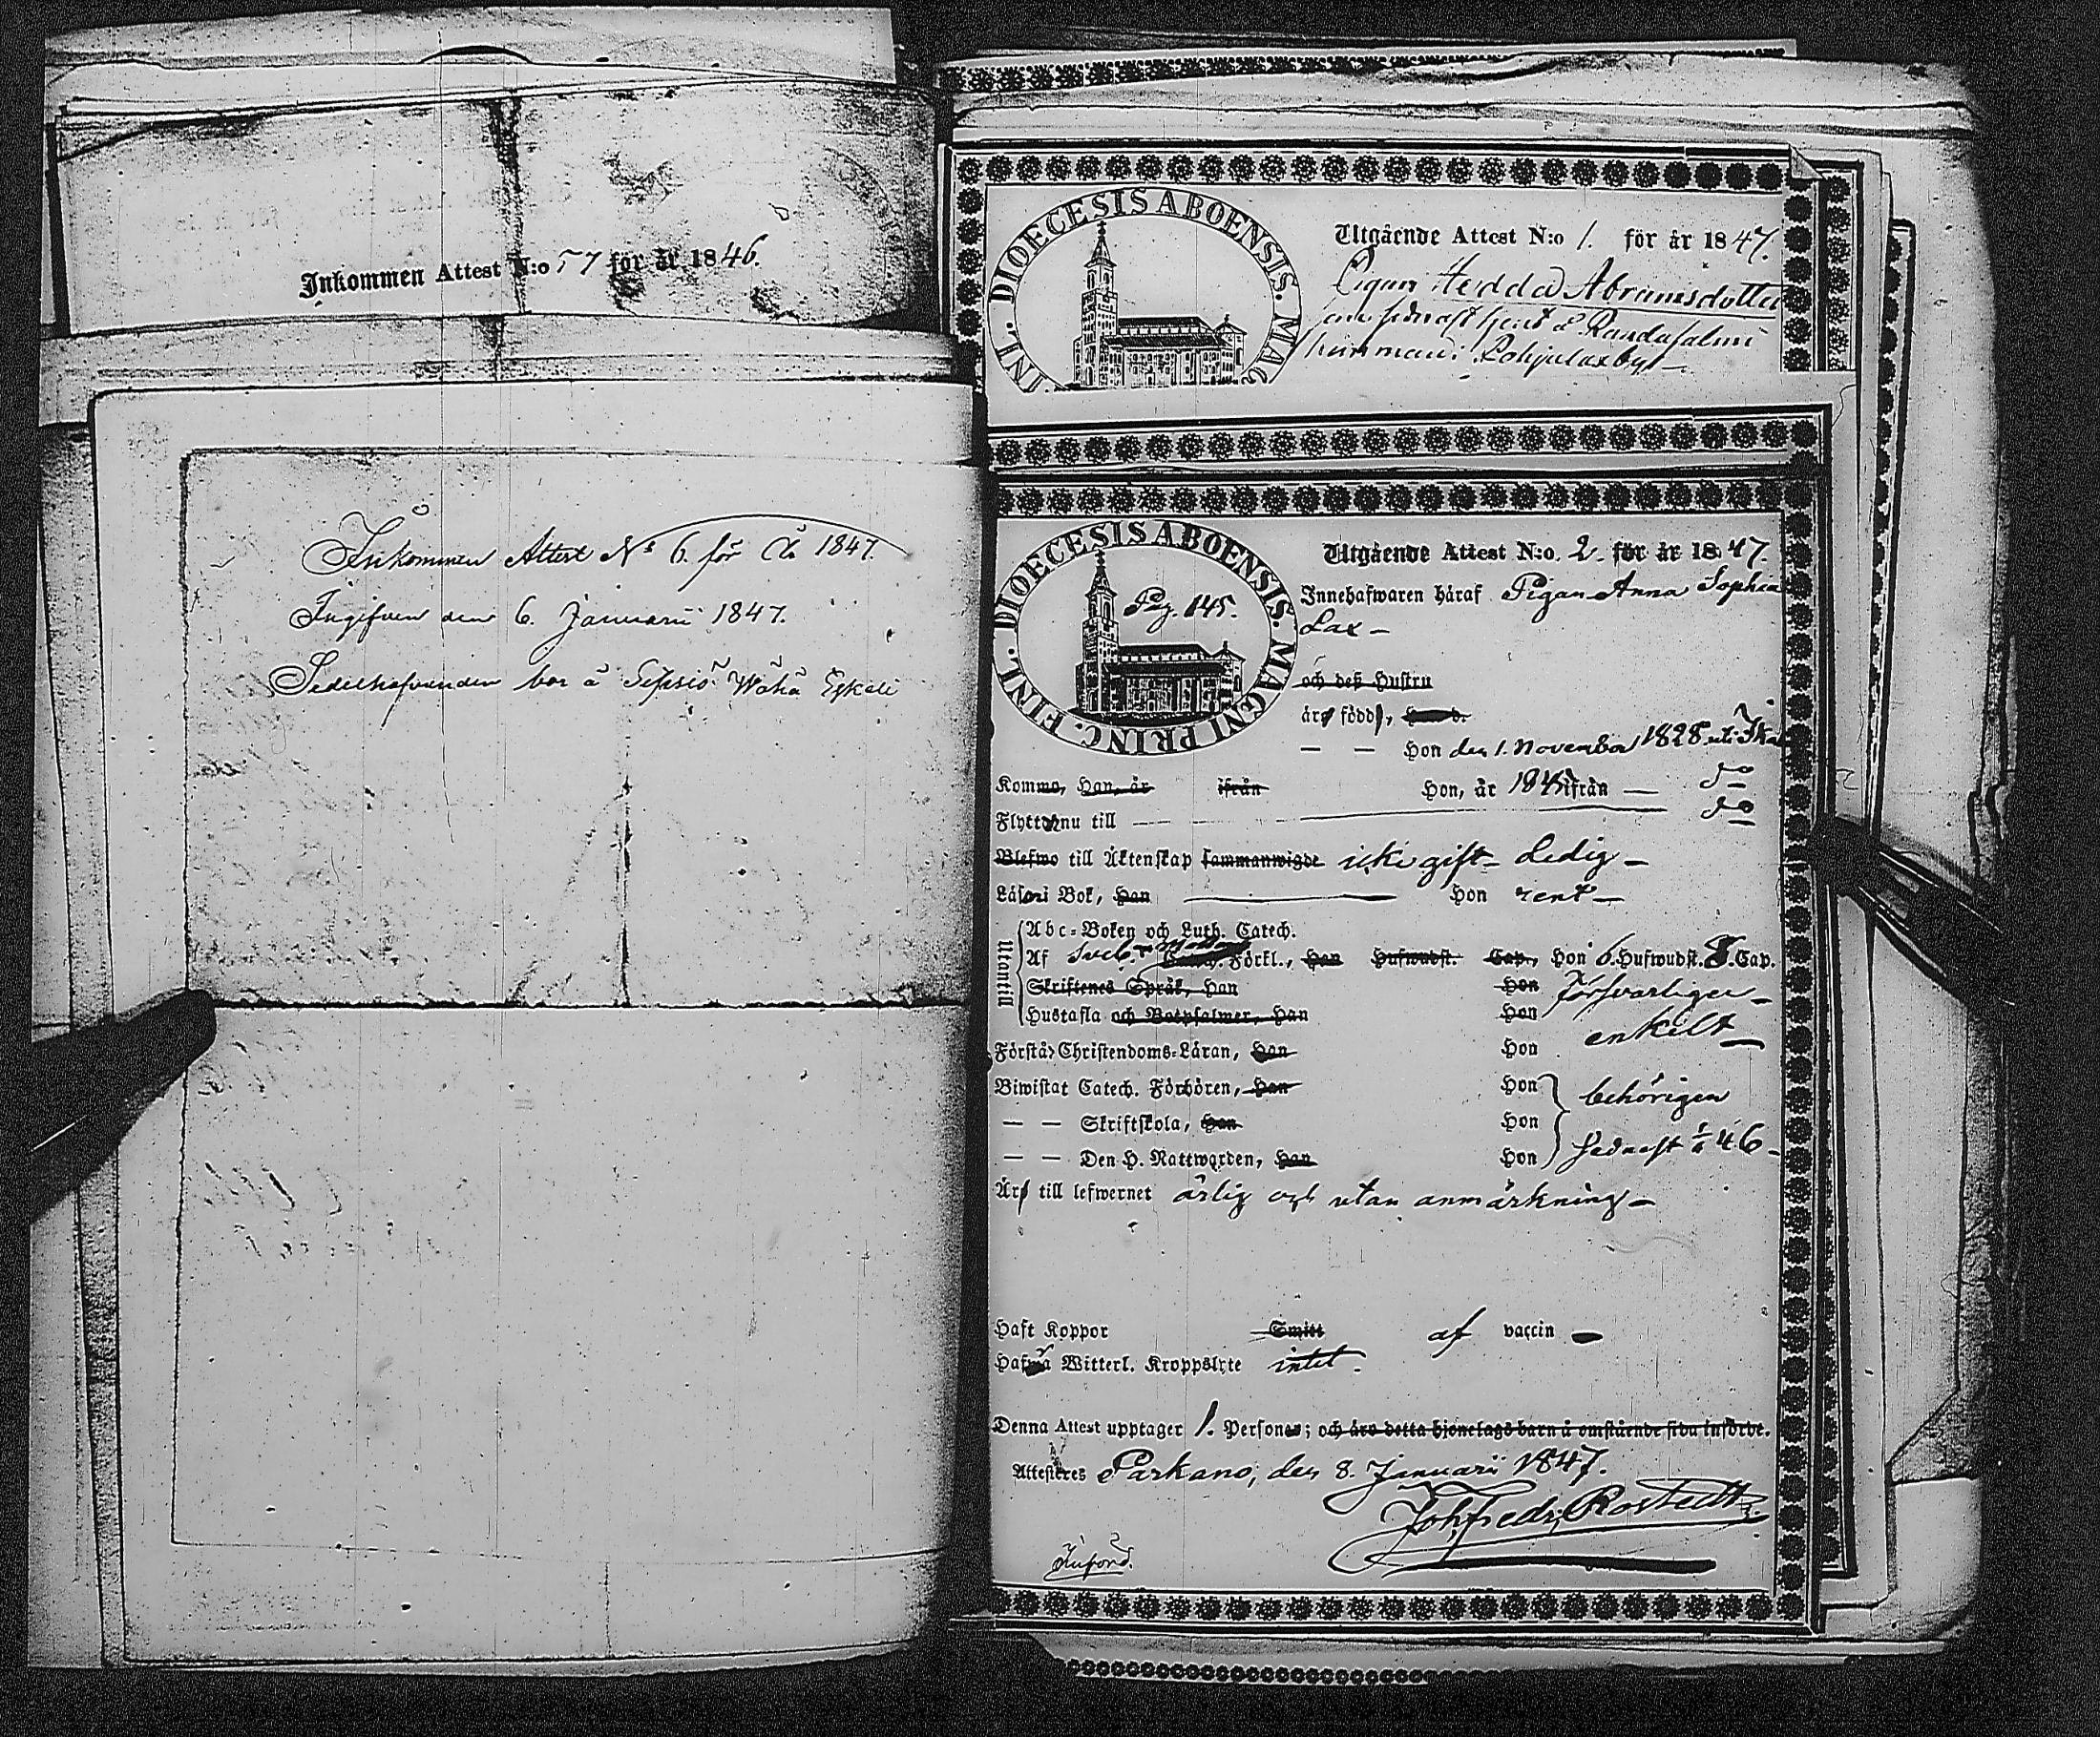 Inkommen Attest N:o 57 för år 1846.
Inkommen Attest No 6. för År 1847.
Ingifven den 6. Januarii 1847.
Sedelhafvanden bor å Sipsiö Wähä Eskeli
FINL. DIOECESIS ABOENSIS. MAG
Utgående Attest N:o 1. för år 1847.
Pigan Hedda Abramsdotter
som sednast tjent å
hemman i Pohjulaxby
FINL. DIOECESIS ABOENSIS. MAGNI PRINC.
Pag. 145.
Utgående Attest N:o 2. för år 1847.
Innehafwaren häraf Pigan Anna Sophia
Lax –
och deß Hustru
är född,
— — Hon den 1. November 1828 uti Ika
Komma, Han, år ifrån Hon, år 1845 ifrån — do
Flyttar nu till — do
Blefwo till Äktenskap sammanwigde icke gift – Ledig –
Läser i Bok, Han — Hon rent –
Utantill
Abc-Boken och Luth. Catech.
Af Sveb. Förkl., Han Hufwudst. Cap., Hon 6. Hufwudst. 8. Cap.
Skriftenes Språk, Han Hon försvarligen –
Hustafla och Botpsalmer, Han Hon
Förstår Christendoms-Läran, Han Hon enkelt –
Biwistat Catech. Förhören, Han Hon behörigen
— — Skriftskola, Han Hon
— — Den H. Nattwarden, Han Hon sednast 46 –
Är till lefwernet ärlig och utan anmärkning –
Haft Koppor Smitt af vaccin –
Witterl. Kroppslyte intet.
Denna Attest upptager 1. Person; och äro detta hjonelags barn å omstående sida införde.
Attesteres Parkano, den 8. Januarii 1847.
Joh. Fredr. Rostedt
Införd.